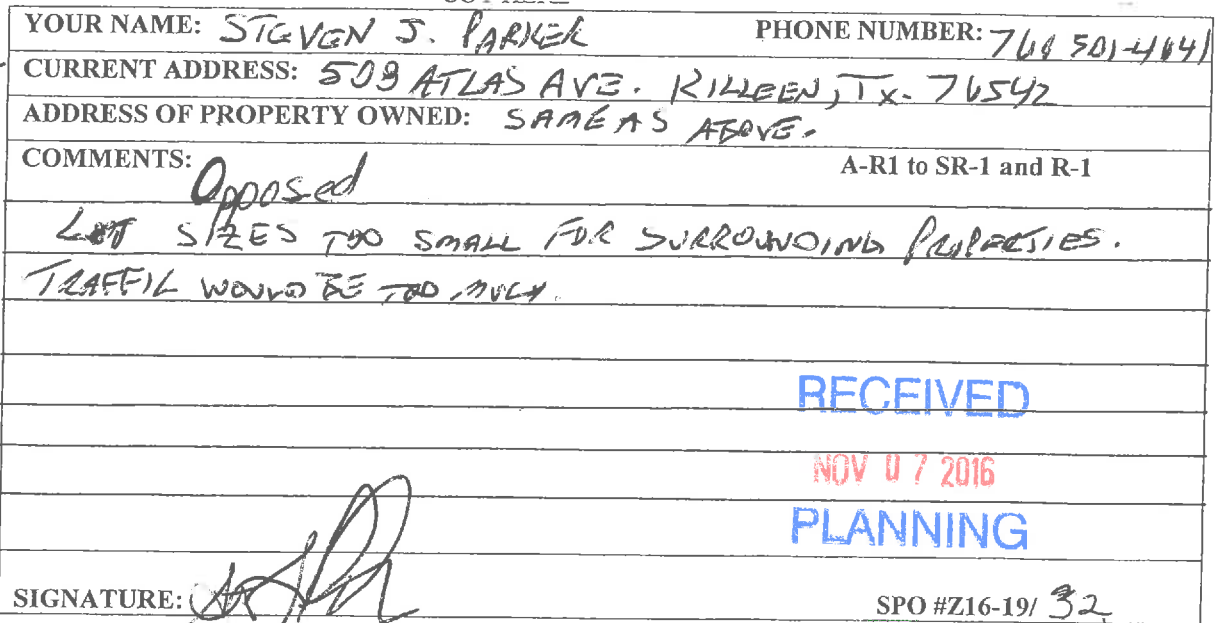 YOUR NAME: STEVEN J. PARKER PHONE NUMBER: 760 501-4641
CURRENT ADDRESS: 509 ATLAS AVE. KILLEEN, Tx. 76542
ADDRESS OF PROPERTY OWNED: SAME AS ABOVE.
COMMENTS: Opposed A-R1 to SR-1 and R-1
LOT SIZES TOO SMALL FOR SURROUNDING PROPERTIES.
TRAFFIC WOULD BE TOO MUCH.
RECEIVED
NOV 07 2016
PLANNING
SIGNATURE: SPO #Z16-19/ 32